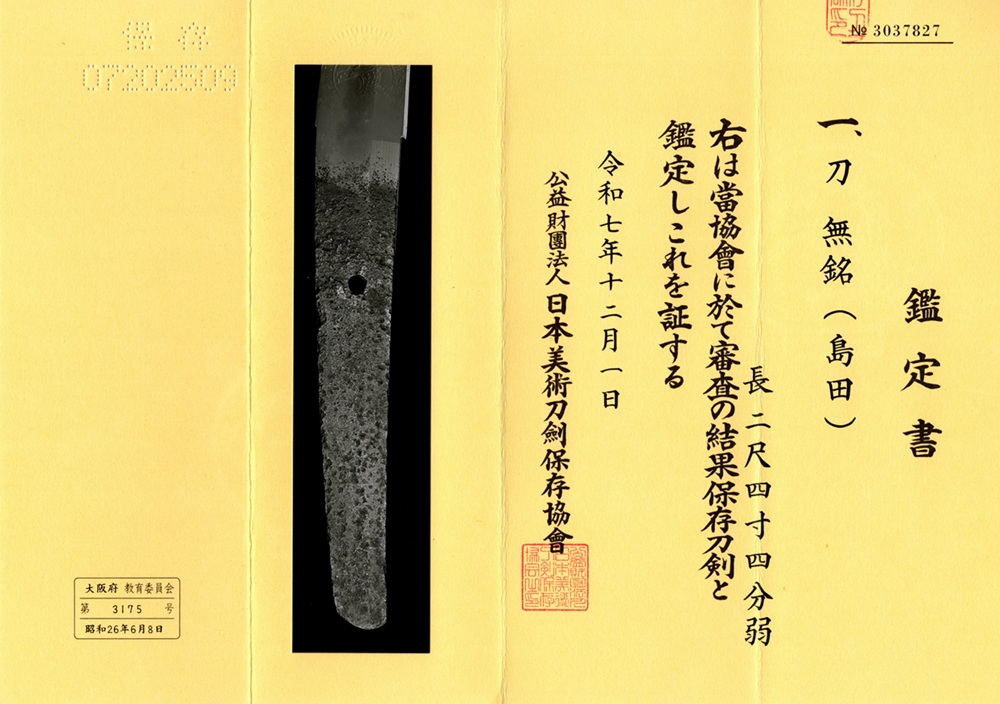 № 3037827
鑑定書
一、刀 無銘（島田）
長二尺四寸四分弱
右は當協會に於て審査の結果保存刀剣と
鑑定しこれを証する
令和七年十二月一日
公益財團法人日本美術刀劍保存協會
保存
07202509
大阪府 教育委員会
第 3175 号
昭和26年6月8日